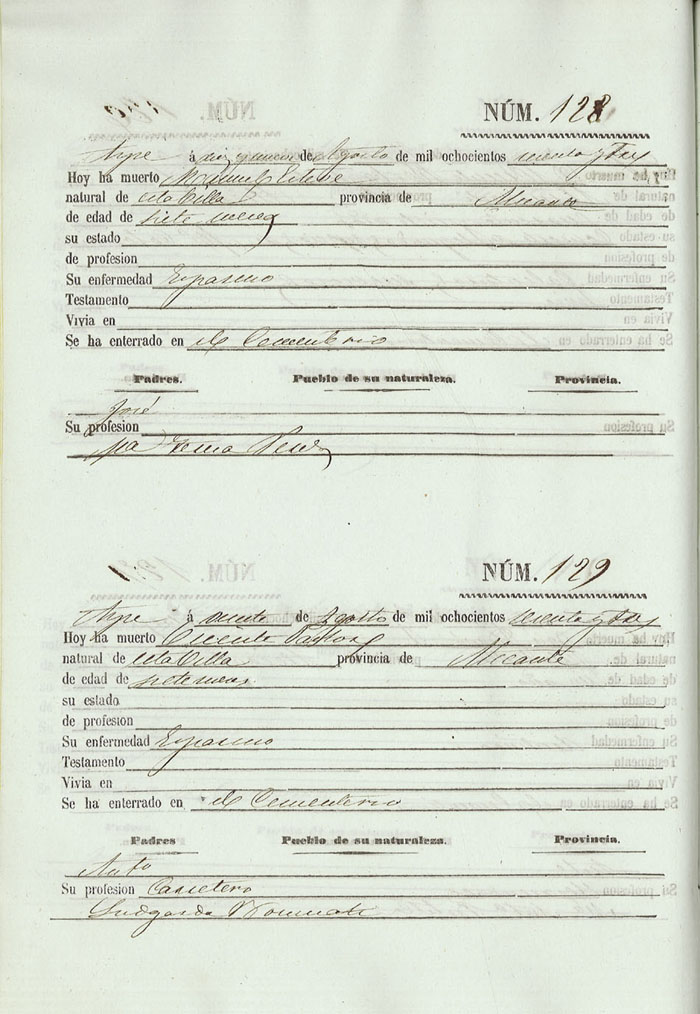 NÚM. 128
Aspe á diez y nueve de Agosto de mil ochocientos
Hoy ha muerto Esteve
natural de esta Villa provincia de Alicante
de edad de siete meses
su estado
de profesion
Su enfermedad Espasmo
Testamento
Vivia en
Se ha enterrado en el Cementerio
Padres. Pueblo de su naturaleza. Provincia.
José
Su profesion
NÚM. 129
Aspe á veinte de Agosto de mil ochocientos
Hoy ha muerto Vicente Pastor
natural de esta Villa provincia de Alicante
de edad de siete meses
su estado
de profesion
Su enfermedad Espasmo
Testamento
Vivia en
Se ha enterrado en el Cementerio
Padres Pueblo de su naturaleza. Provincia.
Anto
Su profesion Carretero